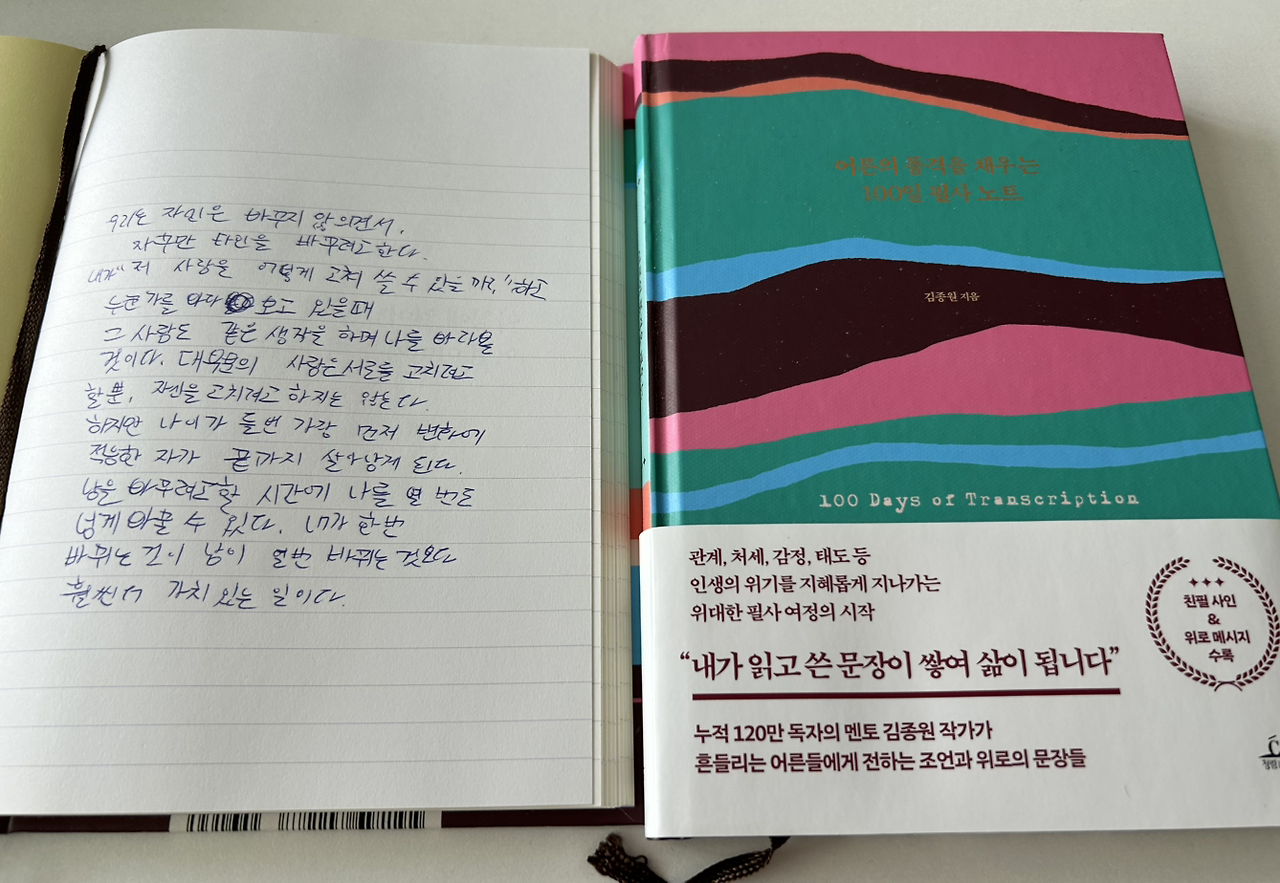 우리는 자신은 바꾸지 않으면서,
자꾸만 타인을 바꾸려고한다.
내가 "저 사람을 어떻게 고쳐 쓸 수 있을까?,"하고
누군가를 바라 보고 있을때
그 사람도 같은 생각을 하며 나를 바라볼
것이다. 대부분의 사람은 서로를 고치려고
할뿐, 자신을 고치려고 하지는 않는다.
하지만 나이가 들면 가장 먼저 변화에
적응한 자가 끝까지 살아남게 된다.
남을 바꾸려고할 시간에 나를 열 번도
넘게 바꿀 수 있다. 내가 한번
바뀌는 것이 남이 열번 바뀌는 것보다
훨씬더 가치 있는 일이다.
어른의 품격을 채우는
100일 필사 노트
김종원 지음
100 Days of Transcription
관계, 처세, 감정, 태도 등
인생의 위기를 지혜롭게 지나가는
위대한 필사 여정의 시작
“내가 읽고 쓴 문장이 쌓여 삶이 됩니다”
누적 120만 독자의 멘토 김종원 작가가
흔들리는 어른들에게 전하는 조언과 위로의 문장들
친필 사인
&
위로 메시지
수록